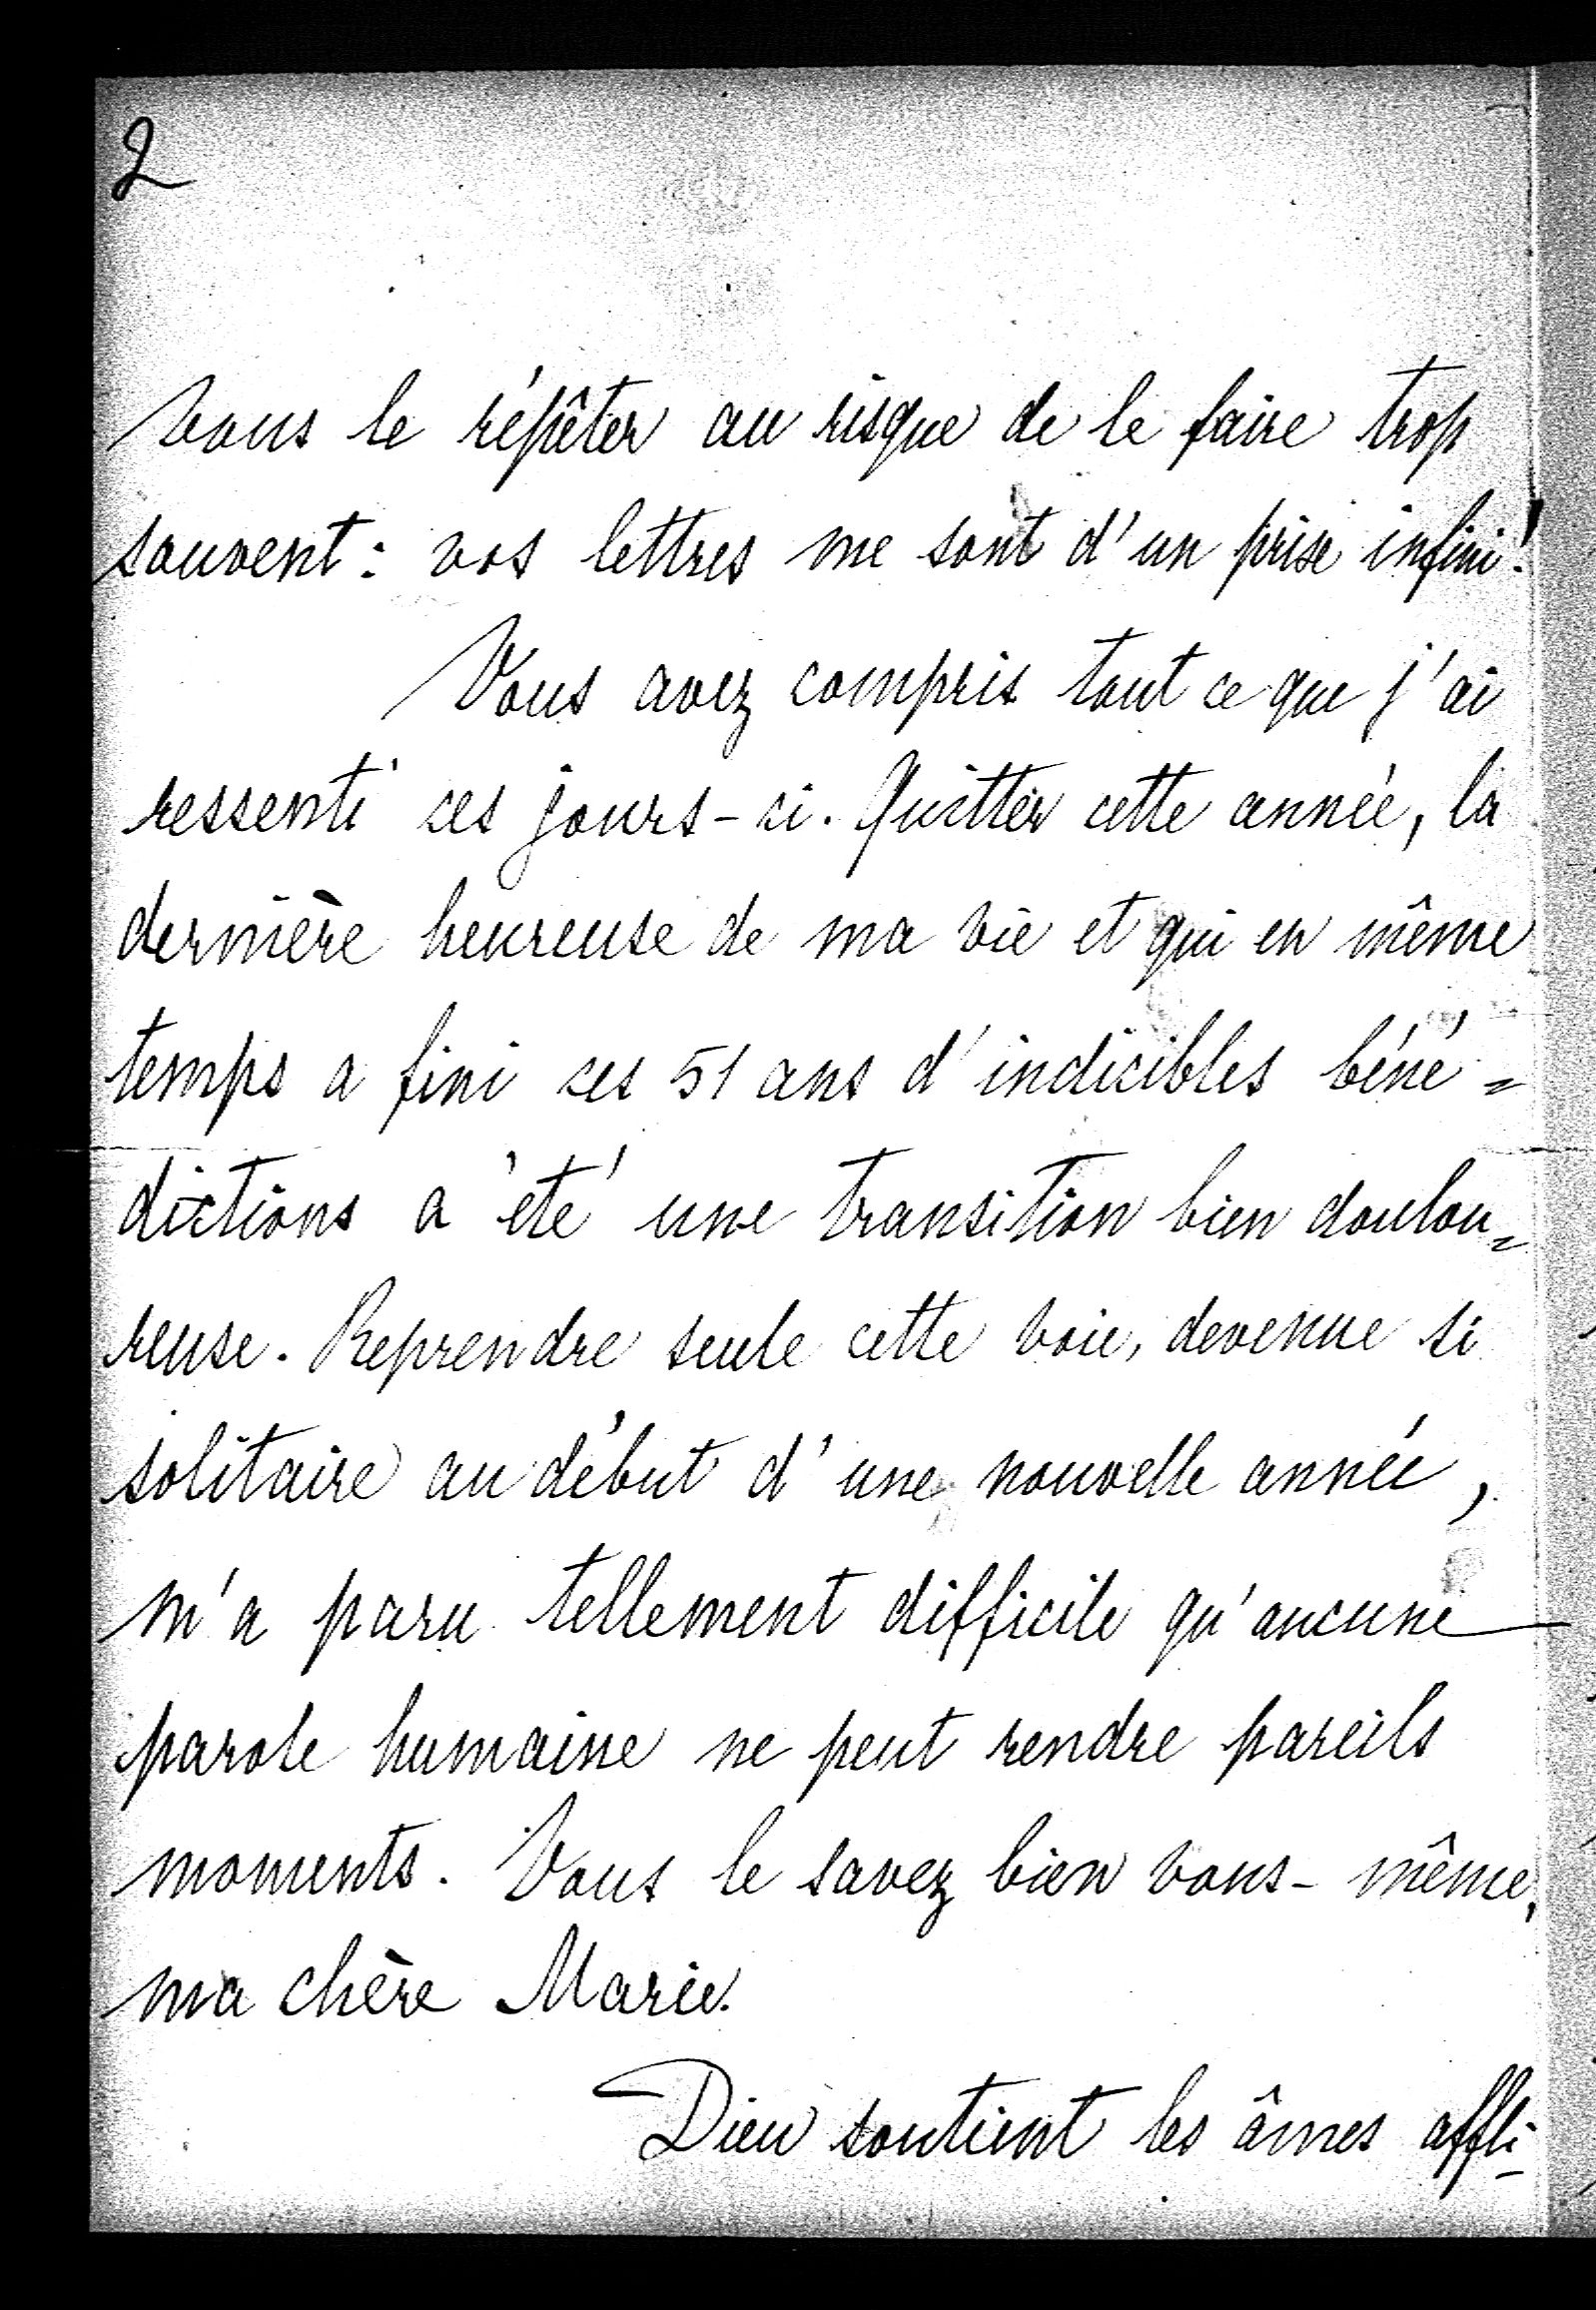 2
vous le répêter au risque de le faire trop
souvent: vos lettres me sont d'un prise infini!
Vous avez compris tout ce que j'ai
ressenti ces jours-ci. Quitter cette année, la
dernière heureuse de ma vie et qui en même
temps a fini ces 51 ans d'indicibles béné=
dictions a été une transition bien doulou=
reuse. Reprendre seule cette voie, devenue si
solitaire au début d'une nouvelle année,
m'a paru tellement difficile qu'aucune
parole humaine ne peut rendre pareils
moments. Vous le savez bien vous-même,
ma chère Marie.
Dieu soutient les âmes affli-